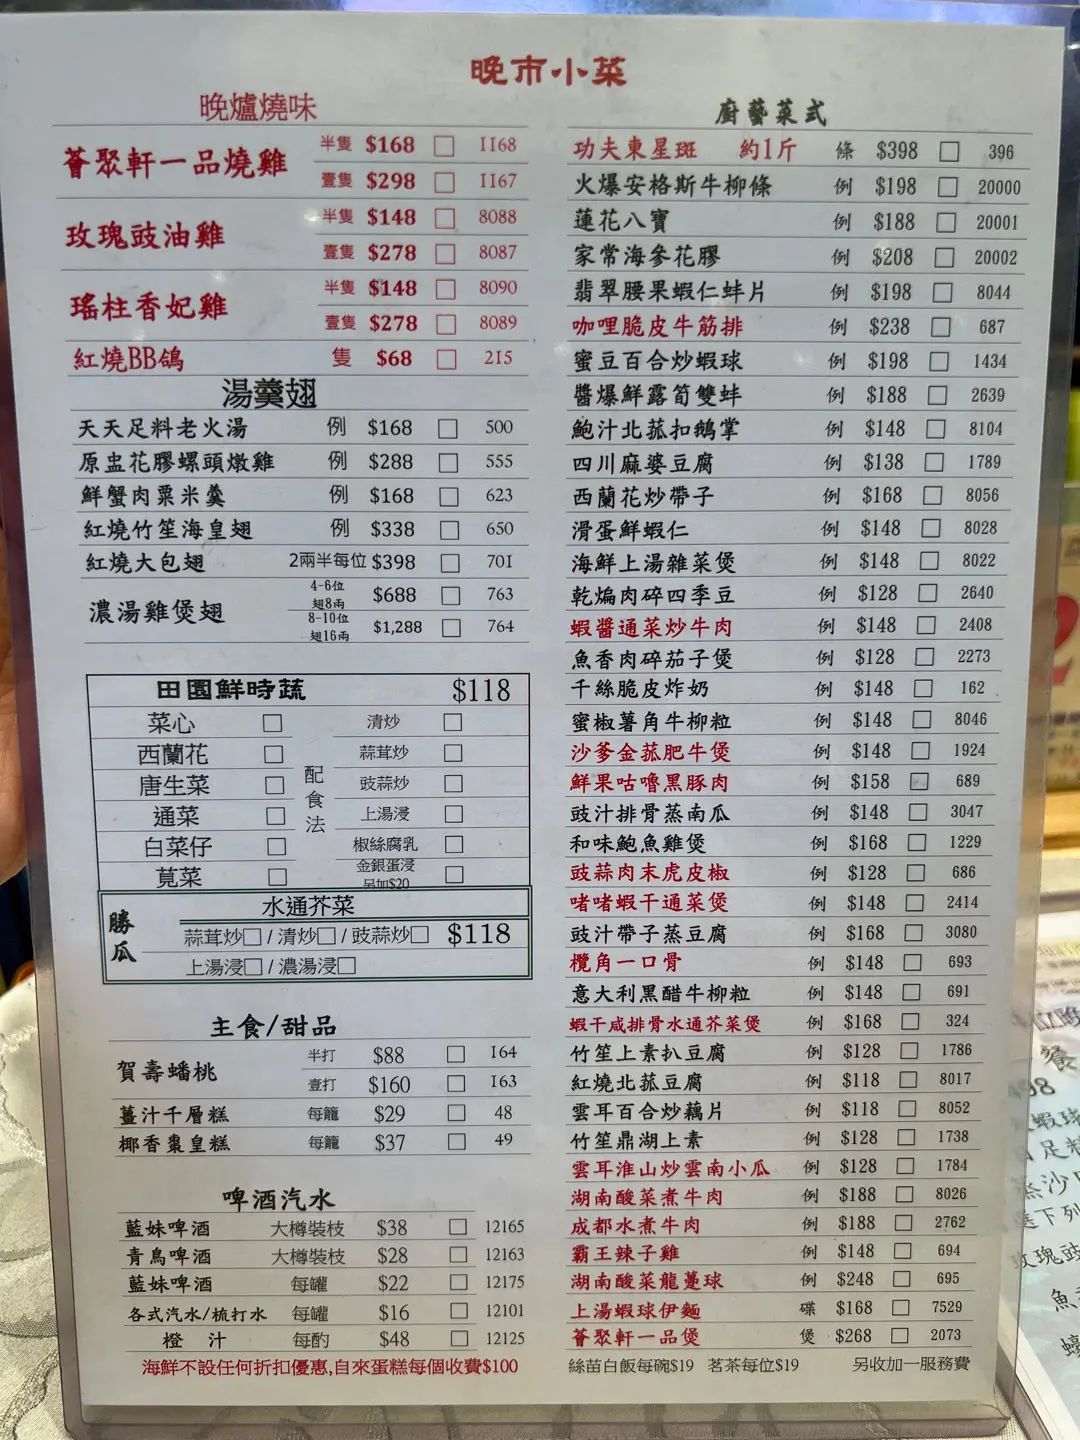 晚市小菜
晚爐燒味
薈聚軒一品燒雞 半隻 $168 □ 1168
壹隻 $298 □ 1167
玫瑰豉油雞 半隻 $148 □ 8088
壹隻 $278 □ 8087
瑤柱香妃雞 半隻 $148 □ 8090
壹隻 $278 □ 8089
紅燒BB鴿 隻 $68 □ 215
湯羹翅
天天足料老火湯 例 $168 □ 500
原盅花膠螺頭燉雞 例 $288 □ 555
鮮蟹肉粟米羹 例 $168 □ 623
紅燒竹笙海皇翅 例 $338 □ 650
紅燒大包翅 2兩半每位 $398 □ 701
濃湯雞煲翅 4-6位 翅8兩 $688 □ 763
8-10位 翅16兩 $1,288 □ 764
田園鮮時蔬 $118
配食法
菜心 □ 清炒 □
西蘭花 □ 蒜茸炒 □
唐生菜 □ 豉蒜炒 □
通菜 □ 上湯浸 □
白菜仔 □ 椒絲腐乳 □
莧菜 □ 金銀蛋浸 另加$20 □
勝瓜
水通芥菜
蒜茸炒□ / 清炒□ / 豉蒜炒□ $118
上湯浸□ / 濃湯浸□
主食/甜品
賀壽蟠桃 半打 $88 □ 164
壹打 $160 □ 163
薑汁千層糕 每籠 $29 □ 48
椰香棗皇糕 每籠 $37 □ 49
啤酒汽水
藍妹啤酒 大樽裝枝 $38 □ 12165
青島啤酒 大樽裝枝 $28 □ 12163
藍妹啤酒 每罐 $22 □ 12175
各式汽水/梳打水 每罐 $16 □ 12101
橙 汁 每酌 $48 □ 12125
海鮮不設任何折扣優惠,自來蛋糕每個收費$100
廚藝菜式
功夫東星斑 約1斤 條 $398 □ 396
火爆安格斯牛柳條 例 $198 □ 20000
蓮花八寶 例 $188 □ 20001
家常海參花膠 例 $208 □ 20002
翡翠腰果蝦仁蚌片 例 $198 □ 8044
咖哩脆皮牛筋排 例 $238 □ 687
蜜豆百合炒蝦球 例 $198 □ 1434
醬爆鮮露荀雙蚌 例 $188 □ 2639
鮑汁北菰扣鵝掌 例 $148 □ 8104
四川麻婆豆腐 例 $138 □ 1789
西蘭花炒帶子 例 $168 □ 8056
滑蛋鮮蝦仁 例 $148 □ 8028
海鮮上湯雜菜煲 例 $148 □ 8022
乾煸肉碎四季豆 例 $128 □ 2640
蝦醬通菜炒牛肉 例 $148 □ 2408
魚香肉碎茄子煲 例 $128 □ 2273
千絲脆皮炸奶 例 $148 □ 162
蜜椒薯角牛柳粒 例 $148 □ 8046
沙爹金菰肥牛煲 例 $148 □ 1924
鮮果咕嚕黑豚肉 例 $158 □ 689
豉汁排骨蒸南瓜 例 $148 □ 3047
和味鮑魚雞煲 例 $168 □ 1229
豉蒜肉末虎皮椒 例 $128 □ 686
啫啫蝦干通菜煲 例 $148 □ 2414
豉汁帶子蒸豆腐 例 $168 □ 3080
欖角一口骨 例 $148 □ 693
意大利黑醋牛柳粒 例 $148 □ 691
蝦干咸排骨水通芥菜煲 例 $168 □ 324
竹笙上素扒豆腐 例 $128 □ 1786
紅燒北菰豆腐 例 $118 □ 8017
雲耳百合炒藕片 例 $118 □ 8052
竹笙鼎湖上素 例 $128 □ 1738
雲耳淮山炒雲南小瓜 例 $128 □ 1784
湖南酸菜煮牛肉 例 $188 □ 8026
成都水煮牛肉 例 $188 □ 2762
霸王辣子雞 例 $148 □ 694
湖南酸菜龍躉球 例 $248 □ 695
上湯蝦球伊麵 碟 $168 □ 7529
薈聚軒一品煲 煲 $268 □ 2073
絲苗白飯每碗$19 茗茶每位$19 另收加一服務費